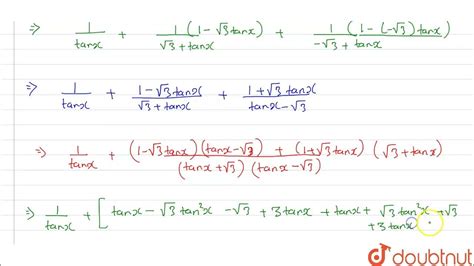 ⇒ 1/tanx + 1(1-√3tanx)/√3+tanx + 1(1-(-√3)tanx)/-√3+tanx
⇒ 1/tanx + 1-√3tanx/√3+tanx + 1+√3tanx/tanx-√3
⇒ 1/tanx + (1-√3tanx)(tanx-√3) + (1+√3tanx)(√3+tanx)/(tanx+√3)(tanx-√3)
⇒ 1/tanx + [tanx-√3tan²x-√3+3tanx+tanx+√3tan²x+√3
+3tanx
doubtnut